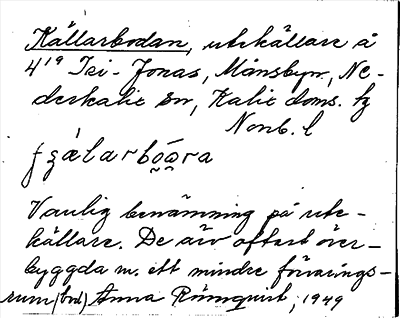 Källarbodan, utekällare å
4¹⁹ Tei-Jonas, Månsbyn, Ne-
derkalix sn, Kalix doms. hg
Norrb. l
Vanlig benämning på ute-
källare. De äro oftast över-
byggda m. ett mindre förvarings-
rum (bod) Anna Rönnquist, 1949